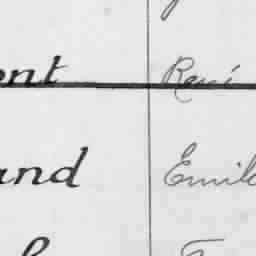 ont René
and Emile